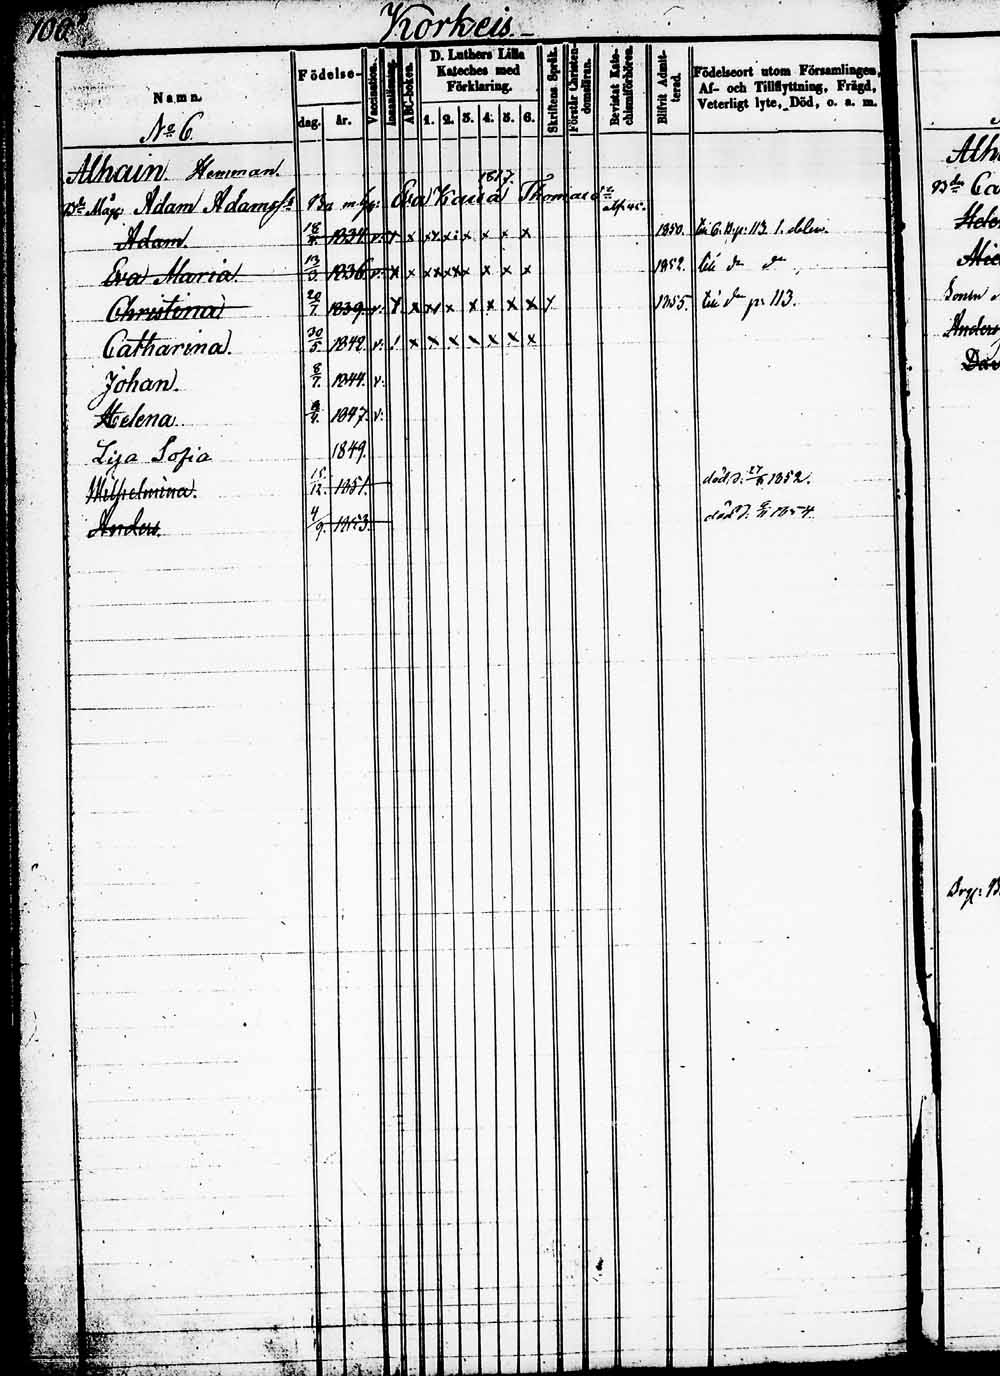 100
Korkeis.
Namn.
No 6.
Födelse-
dag.
år.
Vaccination.
Innanläsning.
ABC-boken.
D. Luthers Lilla
Kateches med
Förklaring.
1. 2. 3. 4. 5. 6.
Skriftens Språk.
Förstår Christen-
domsläran.
Bevistat Kate-
chismiförhören.
Blifvit Admit-
terad.
Födelseort utom Församlingen,
Af- och Tillflyttning, Frägd,
Veterligt lyte, Död, o. a. m.
Alhain Hemman.
1817.
Adam Eva Thomas
Adam. 18 1834 v. x x x x x x x 1850. p: 113
Eva Maria. 13/3 1836 v: x x x x x x 1852.
Christina 20/7 1839 v. x x x x x x x 1855. p: 113.
Catharina. 30/5 1842. v: x x x x x x x
Johan. 8/7. 1844. v:
Helena 1847. v:
Liza Sofia 1849.
Wilhelmina. 15/12. 1851. död d. 1852.
Anders. 4/9. 1853. död d. 1854.
Alh
Ca
Hele
Sonen
Anders
Da